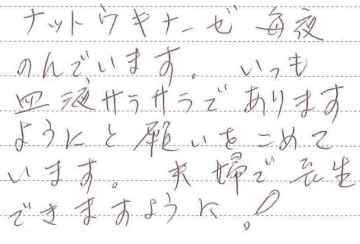 ナットウキナーゼ 毎夜
のんでいます。 いつも
血液サラサラであります
ようにと願いをこめて
います。 夫婦で長生
できますように!